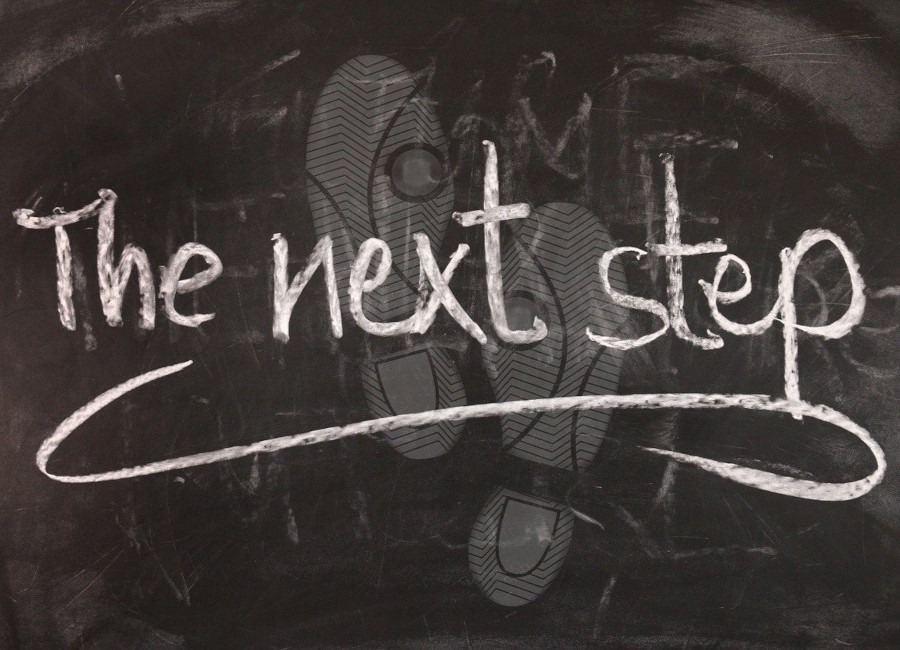 The next step